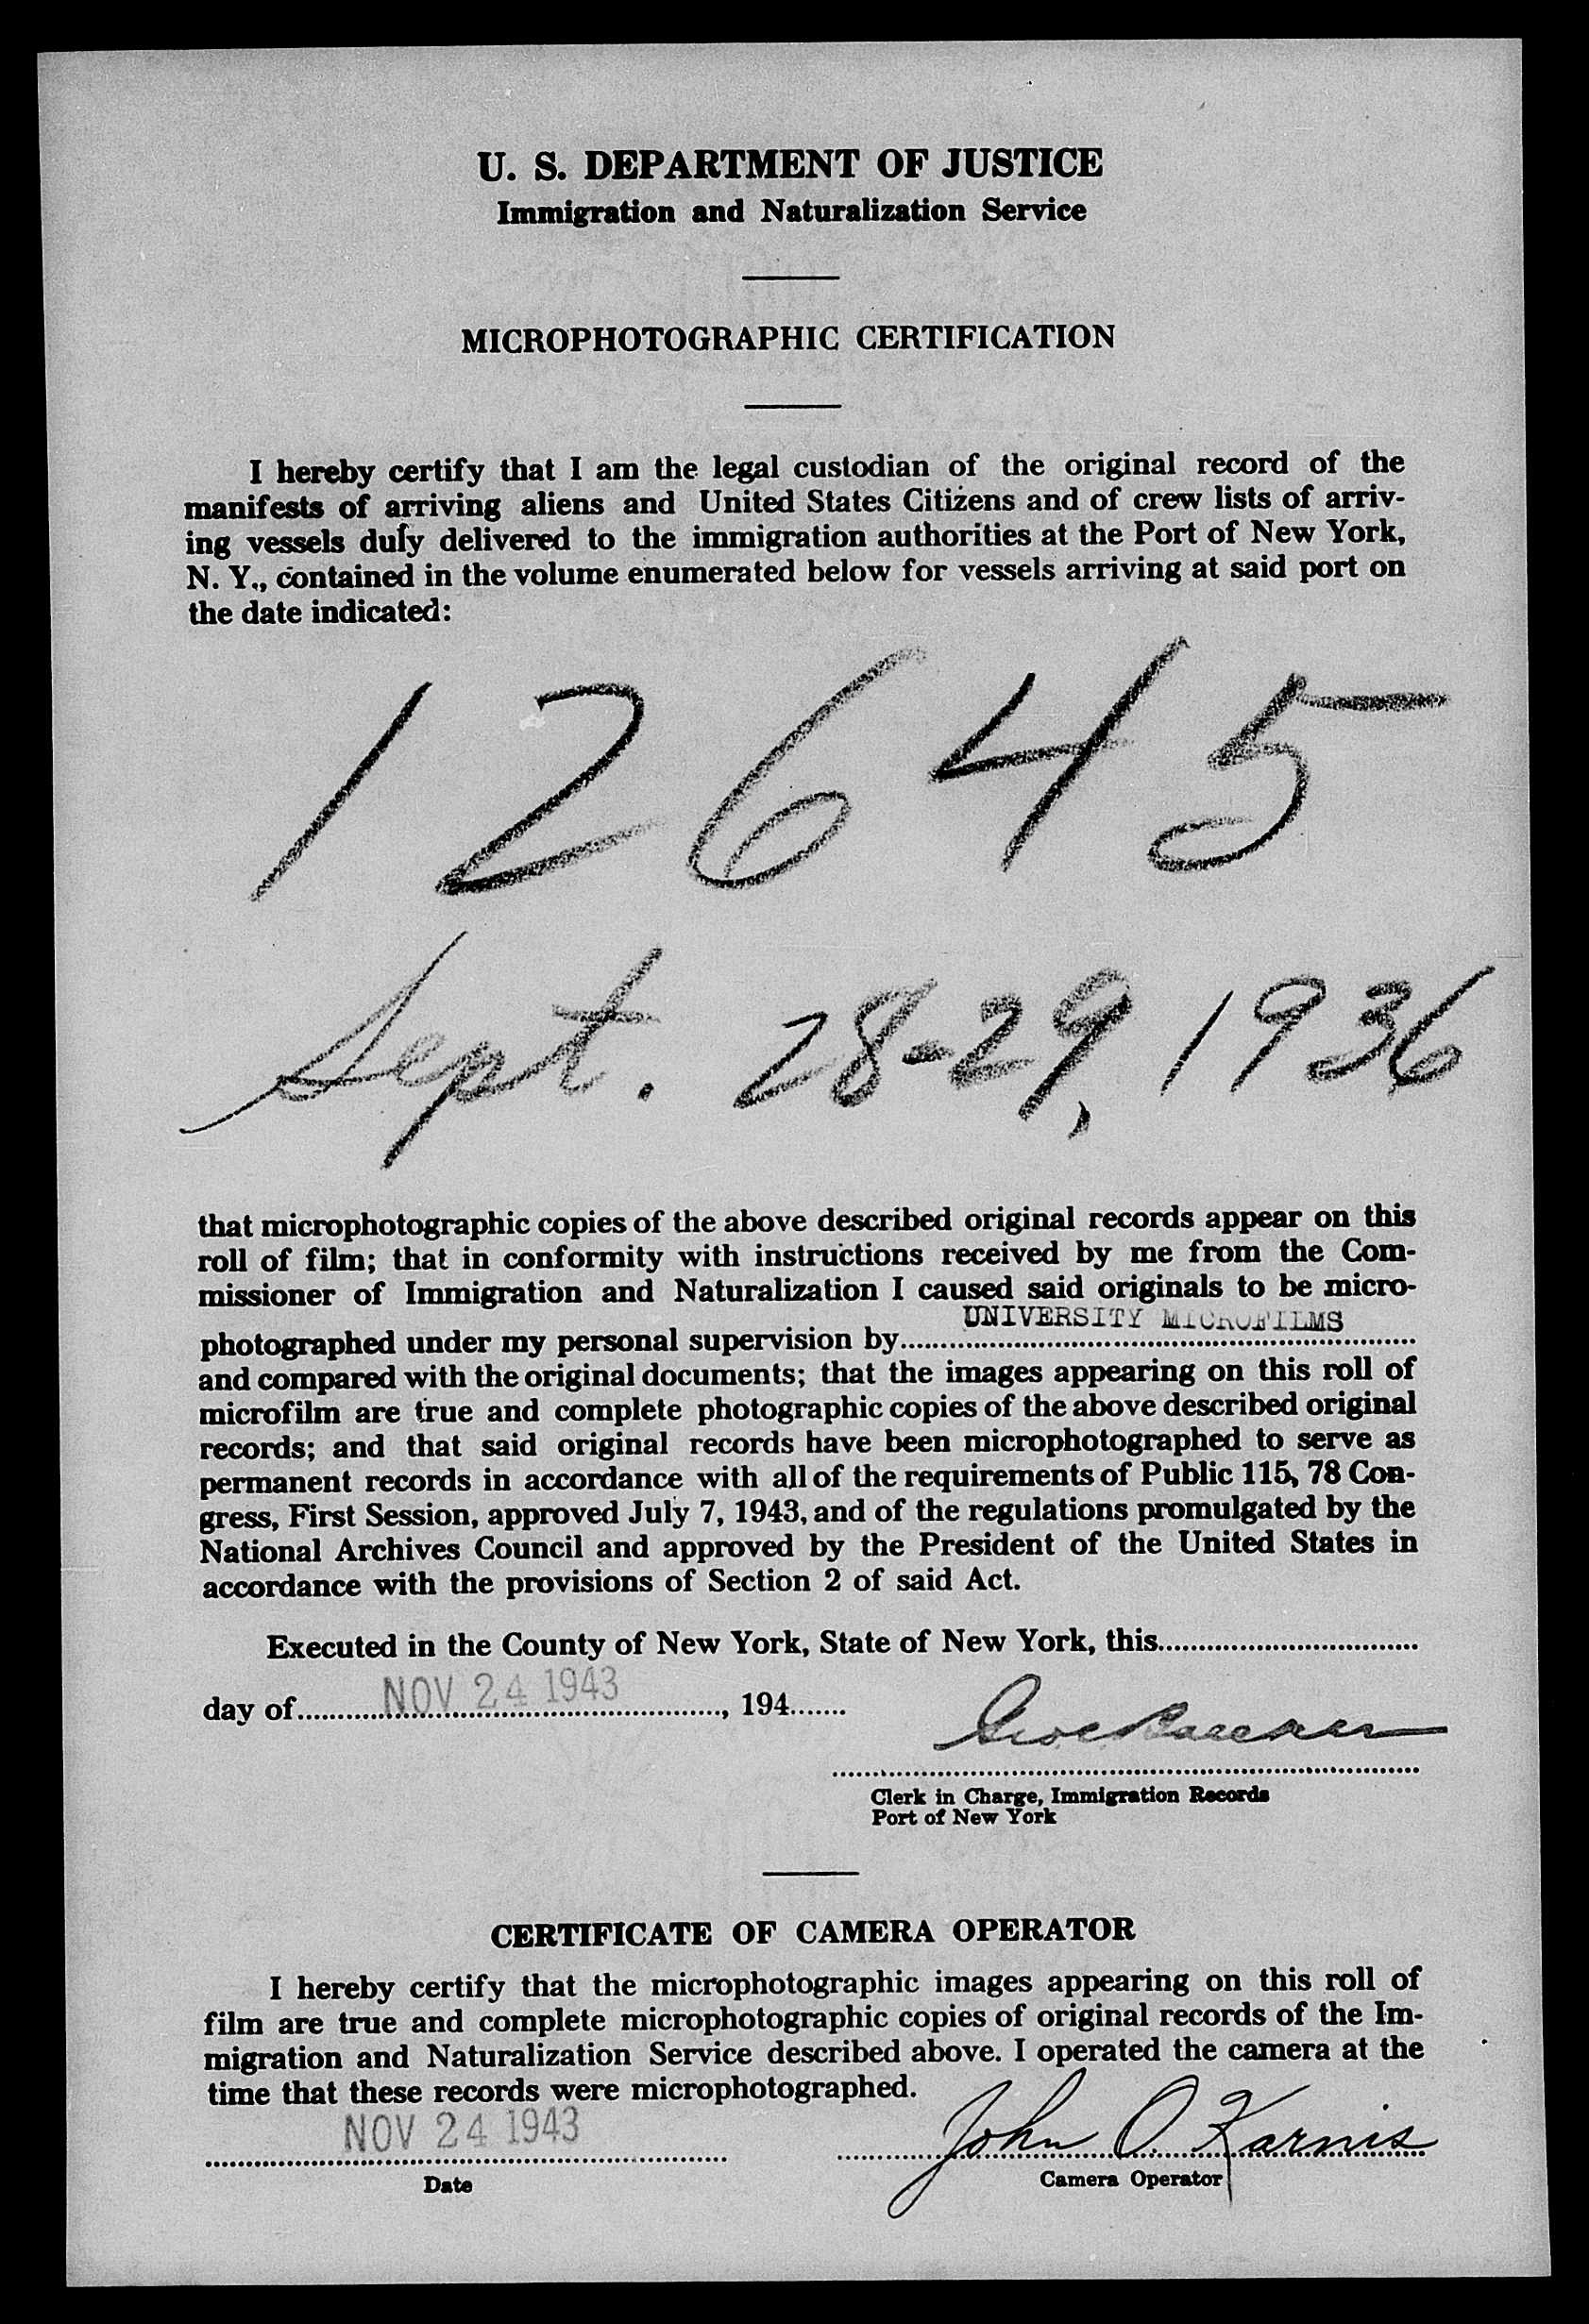 U. S. DEPARTMENT OF JUSTICE
Immigration and Naturalization Service
MICROPHOTOGRAPHIC CERTIFICATION
I hereby certify that I am the legal custodian of the original record of the
manifests of arriving aliens and United States Citizens and of crew lists of arriv-
ing vessels duly delivered to the immigration authorities at the Port of New York,
N. Y., contained in the volume enumerated below for vessels arriving at said port on
the date indicated:
12645
Sept. 28-29, 1936
that microphotographic copies of the above described original records appear on this
roll of film; that in conformity with instructions received by me from the Com-
missioner of Immigration and Naturalization I caused said originals to be micro-
UNIVERSITY MICROFILMS
photographed under my personal supervision by
and compared with the original documents; that the images appearing on this roll of
microfilm are true and complete photographic copies of the above described original
records; and that said original records have been microphotographed to serve as
permanent records in accordance with all of the requirements of Public 115, 78 Con-
gress, First Session, approved July 7, 1943, and of the regulations promulgated by the
National Archives Council and approved by the President of the United States in
accordance with the provisions of Section 2 of said Act.
Executed in the County of New York, State of New York, this
day of NOV 24 1943, 194
Clerk in Charge, Immigration Records
Port of New York
CERTIFICATE OF CAMERA OPERATOR
I hereby certify that the microphotographic images appearing on this roll of
film are true and complete microphotographic copies of original records of the Im-
migration and Naturalization Service described above. I operated the camera at the
time that these records were microphotographed.
NOV 24 1943 John O Karnis
Date Camera Operator